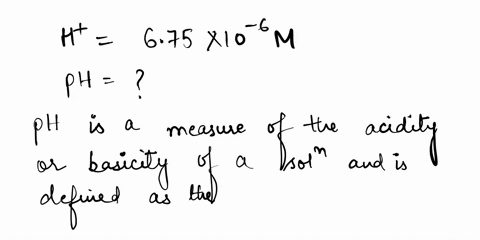 H⁺ = 6.75 × 10⁻⁶ M
pH = ?
pH is a measure of the acidity
or basicity of a solⁿ and is
defined as the